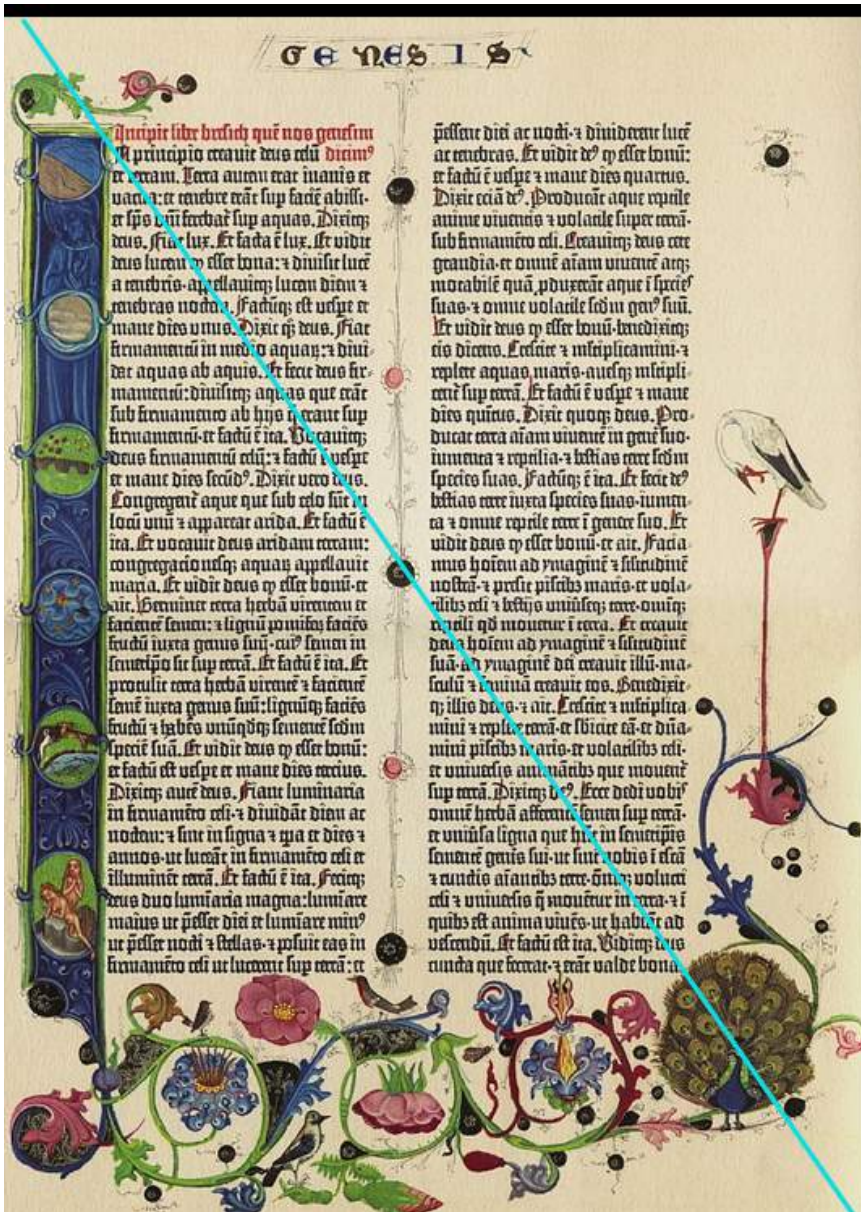 GENESIS
Incipit liber bresich quē nos genesim
In principio creavit deus celū dicim⁹
et terram. Terra autem erat inanis et
vacua: et tenebre erāt sup faciē abissi·
et sp̄s dn̄i ferebat̄ sup aquas. Dixitqꝫ
deus. Fiat lux. Et facta ē lux. Et vidit
deus lucem ꝙ esset bona: ⁊ divisit lucē
a tenebris·appellavitqꝫ lucem diem ⁊
tenebras noctem. Factūqꝫ est vespe et
mane dies unus. Dixit qꝫ deus. Fiat
firmamentū in medio aquaꝝ: ⁊ divi-
dat aquas ab aquis. Et fecit deus fir-
mamentū: divisitqꝫ aquas que erāt
sub firmamento ab hijs que erant sup
firmamentū: et factū ē ita. Vocavitqꝫ
deus firmamentū celū: ⁊ factū ē vespe
et mane dies secūd⁹. Dixit vero deus.
Congregent̄ aque que sub celo sūt in
locū unū ⁊ appareat arida. Et factū ē
ita. Et vocavit deus aridam terram:
congregacionesqꝫ aquaꝝ appellavit
maria. Et vidit deus ꝙ esset bonū·et
ait. Germinet terra herbā virentem et
facientē semen: ⁊ lignū pomifeꝝ faciēs
fructū iuxta genus suū·cui⁹ semen in
semetip̄o sit sup terrā. Et factū ē ita. Et
protulit terra herbā virentē ⁊ facientē
semē iuxta genus suū: lignūqꝫ faciēs
fructū ⁊ habēs unūqdqꝫ sementē scdm
speciē suā. Et vidit deus ꝙ esset bonū:
et factū est vespe et mane dies tercius.
Dixitqꝫ autē deus. Fiant luminaria
in firmamēto celi·⁊ dividāt diem ac
noctem: ⁊ sint in signa ⁊ tp̄a et dies ⁊
annos·ut luceāt in firmamēto celi et
illuminēt terrā. Et factū ē ita. Fecitqꝫ
deus duo luminaria magna: luminare
maius ut p̄esset diei et luminare min⁹
ut p̄esset nocti ⁊ stellas·⁊ posuit eas in
firmamēto celi ut lucerent sup terrā: et
p̄essent diei ac nocti·⁊ dividerent lucē
ac tenebras. Et vidit de⁹ ꝙ esset bonū:
et factū ē vespe ⁊ mane dies quartus.
Dixit eciā de⁹. Producāt aque reptile
anime viventis ⁊ volatile super terrā·
sub firmamēto celi. Creavitqꝫ deus cete
grandia·et omnē aīam viventē atqꝫ
motabilē quā ꝓduxerāt aque ī species
suas·⁊ omne volatile scdm gen⁹ suū.
Et vidit deus ꝙ esset bonū·benedixitqꝫ
eis dicens. Crescite ⁊ m̄ltiplicamini·⁊
replete aquas maris·avesqꝫ m̄ltipli-
cent̄ sup terrā. Et factū ē vespe ⁊ mane
dies quītus. Dixit quoqꝫ deus. Pro-
ducat terra aīam viventē in genē suo·
iumenta ⁊ reptilia·⁊ bestias terre scdm
species suas. Factūqꝫ ē ita. Et fecit de⁹
bestias terre iuxta species suas·iumen-
ta ⁊ omne reptile terre ī genere suo. Et
vidit deus ꝙ esset bonū·et ait. Facia-
mus hoīem ad ymaginē ⁊ sīlitudinē
nostrā·⁊ presit piscibꝫ maris·et vola-
tilibꝫ celi ⁊ bestijs univerſeqꝫ terre·omniqꝫ
reptili qd movetur ī terra. Et creavit
deus hoīem ad ymaginē ⁊ sīlitudinē
suā·ad ymaginē dei creavit illū·ma-
sculū ⁊ feminā creavit eos. Benedixit-
qꝫ illis deus·⁊ ait. Crescite ⁊ m̄ltiplica-
mini ⁊ replete terrā·et sb̄icite eā·et dn̄a-
mini piscibꝫ maris·et volatilibꝫ celi·
et universis animātibꝫ que moventur
sup terrā. Dixitqꝫ de⁹. Ecce dedi vobis
omnē herbā afferentē semen sup terrā·
et univsa ligna que hn̄t in semetip̄is
sementē genis sui·ut sint vobis ī escā
⁊ cunctis aīantibꝫ terre·om̄iqꝫ volucri
celi ⁊ universis q̄ moventur in terra·⁊ ī
quibꝫ est anima vivēs·ut habeāt ad
vescendū. Et factū est ita. Viditqꝫ deus
cuncta que fecerat·⁊ erāt valde bona